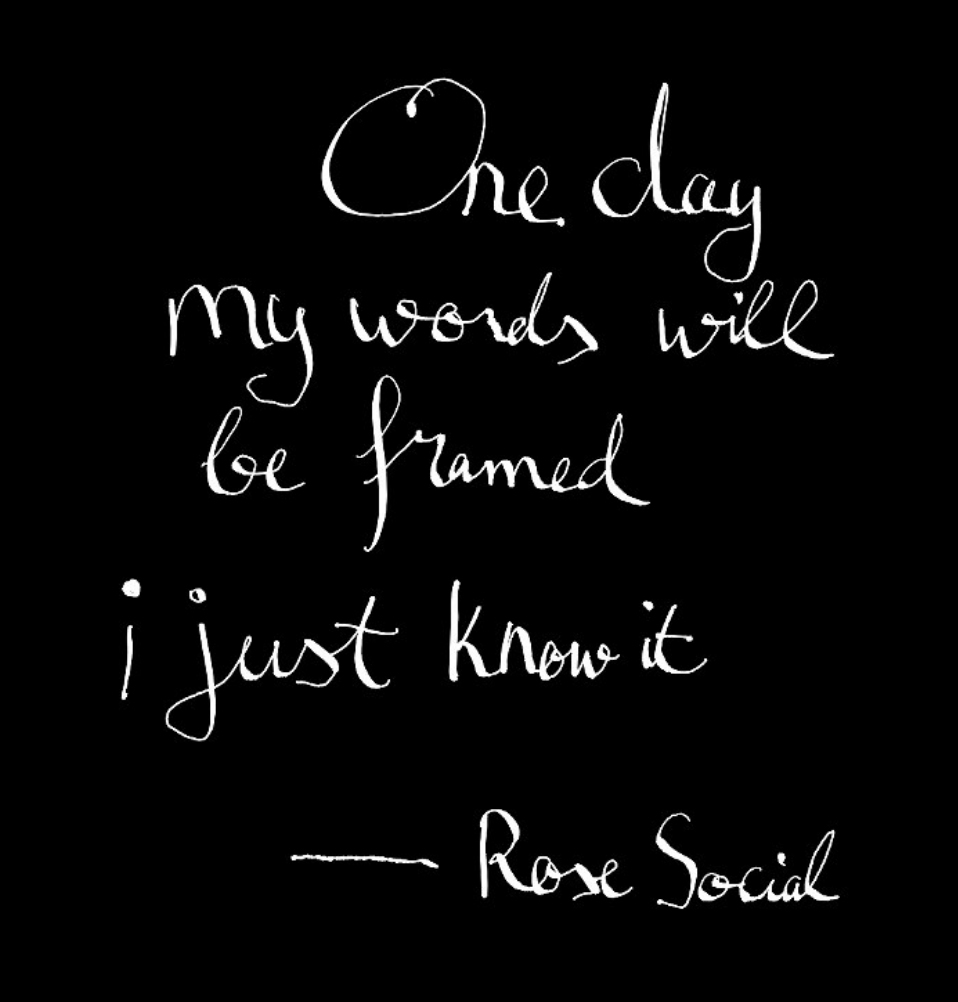 One day
my words will
be framed
i just know it
— Rose Social